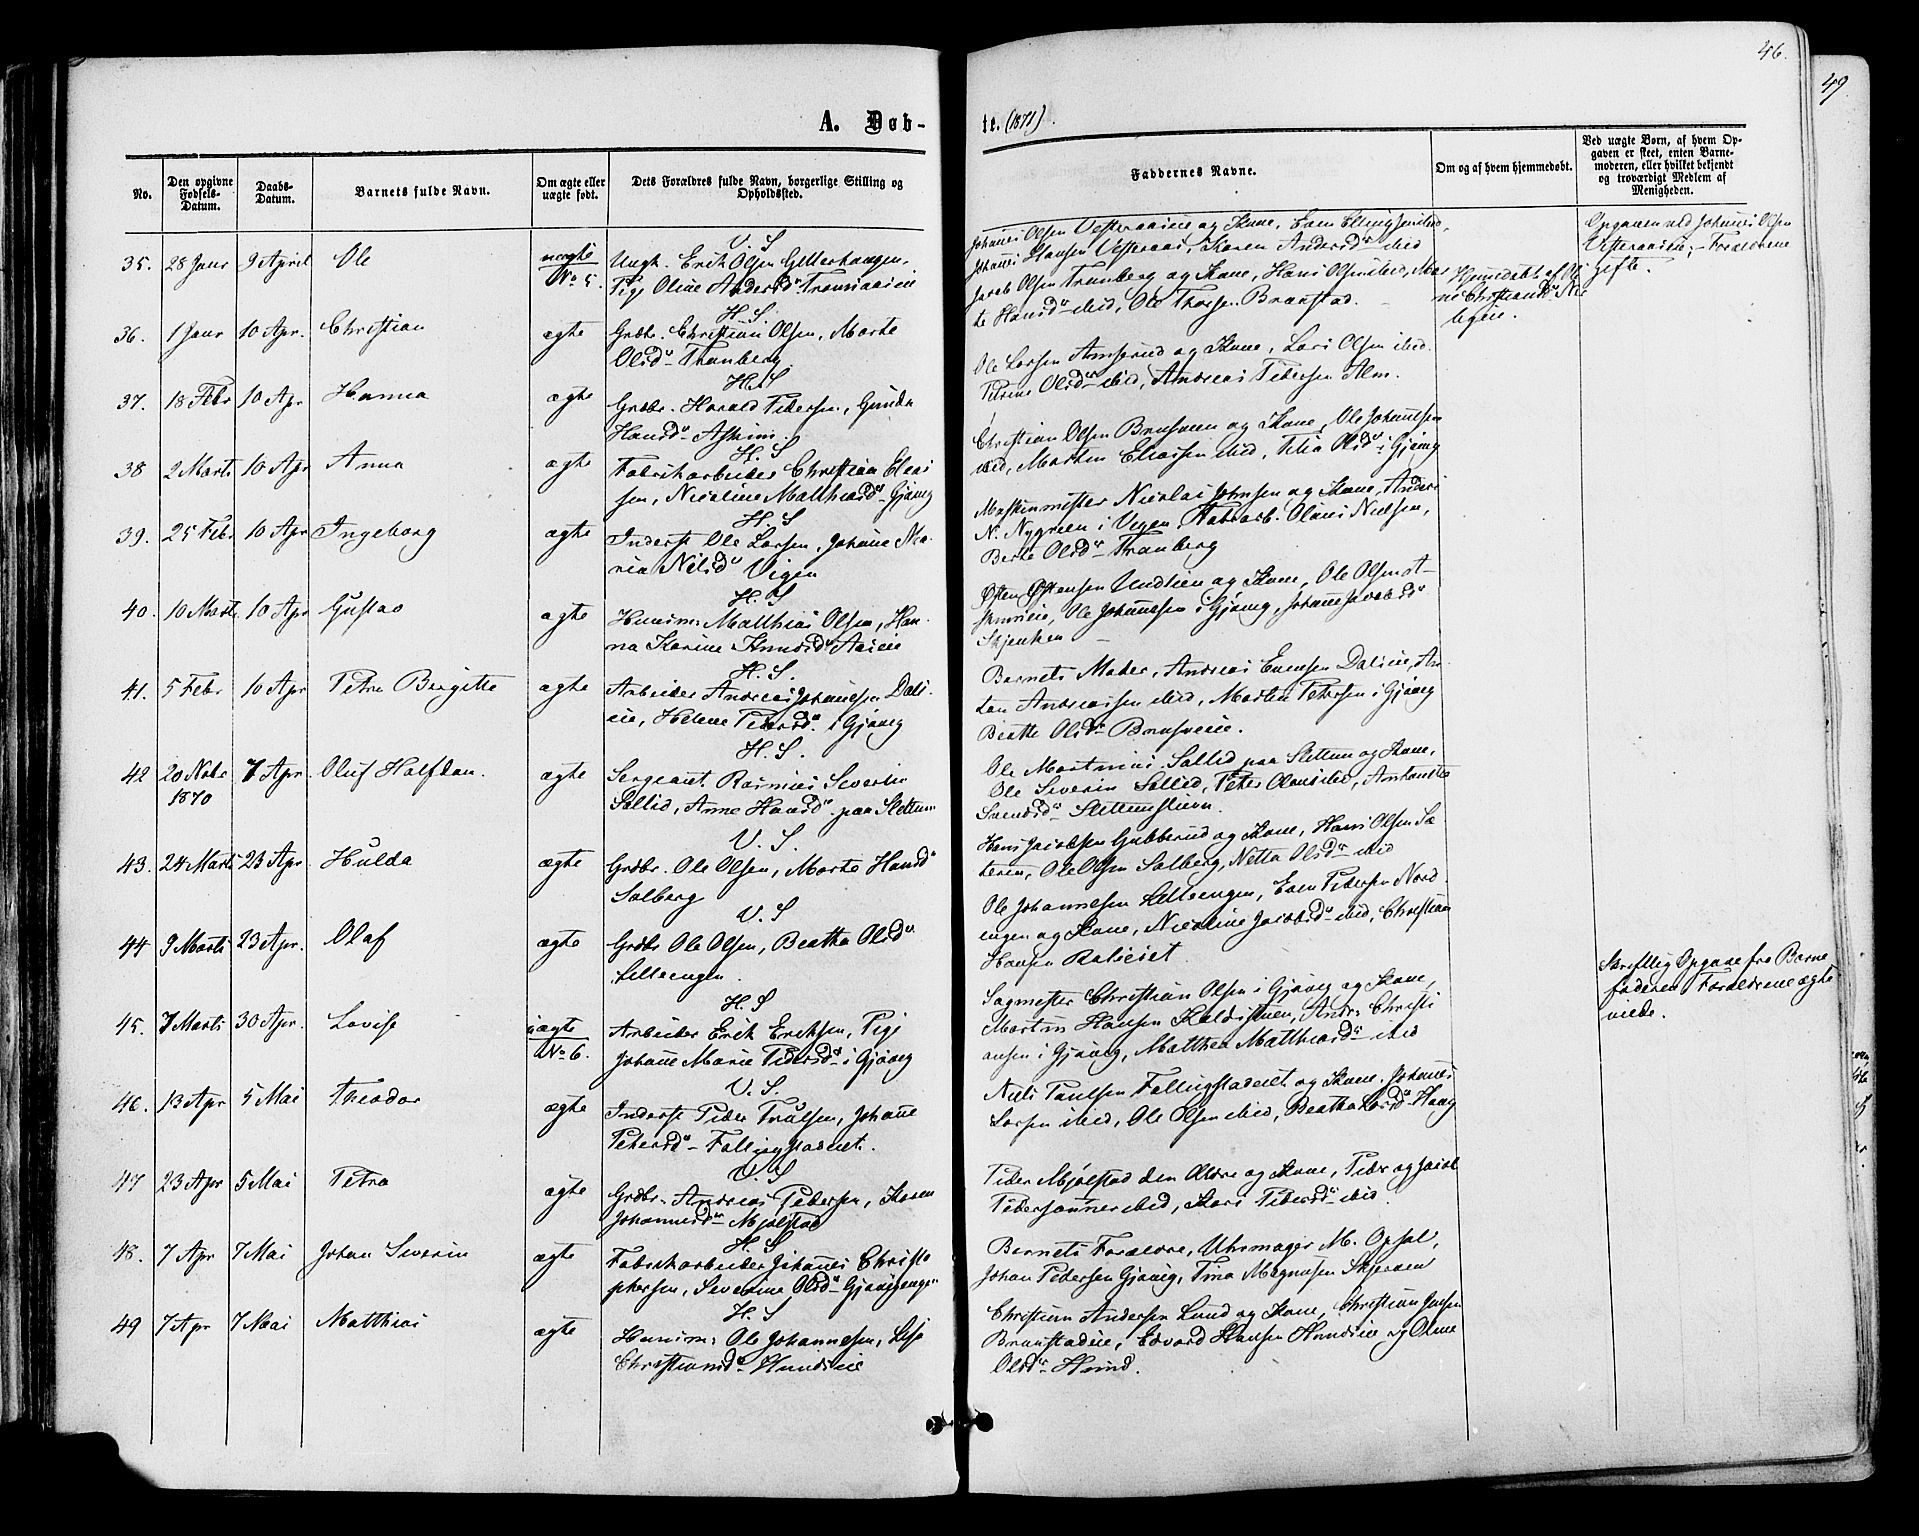 46.
49
A. Døb-
te. (1871)
No.
Den opgivne Fødsels-Datum.
Daabs-Datum.
Barnets fulde Navn.
Om ægte eller uægte født.
Dets Forældres fulde Navn, borgerlige Stilling og Opholdssted.
Faddernes Navne.
Om og af hvem hjemmedøbt.
Ved uægte Børn, af hvem Opgaven er skeet, enten Barnemoderen, eller hvilket bekjendt og troværdigt Medlem af Menigheden.
35. 28 Janr 9 April Ole uægte No 5.
V. S
Ungk. Erik Olsen
Pige Oline Andersd.
Johannes Olsen Vesteraaseie og Kone, Even Ellingsen ibid,
Johannes Hansen Vesteraas, Karen Andersdr ibid
Opgaven ved Johannes Olsen
Vesteraaseie, – Forældrene
gifte.
36. 1 Janr 10 Apr. Christian ægte
H. S
Grdbr. Christian Olsen, Marte
Olsdr Tranberg
Jacob Olsen Tranberg og Kone, Hans Olsen ibid, Mar
te Hansdr ibid, Ole Thorsen Braastad.
Hjemmedøbt af
37. 18 Febr 10 Apr Hanna ægte
H. S
Grdbr. Harald Pedersen, Gunda
Hansdr Askim.
Ole Larsen Amserud og Kone, Lars Olsen ibid.
Petrine Olsdr ibid, Andreas Pedersen Alm.
38 2 Marts 10 Apr Anna ægte
H. S
Fabrikarbeider Christian Elias
sen, Nicoline Matthiasdr Gjøvig
Christian Olsen Brusveen og Kone, Ole Johannesen
ibid, Marthin Eliassen ibid, Olsdr i Gjøvig
39. 25 Febr 10 Apr Ingeborg ægte
H. S
Inderst Ole Larsen, Johanne Ma-
ria Nilsdr Vigen
Maskinmester Nicolai Johnsen og Kone, Anders
N. Nygreen i Vigen, Fabrarb. Olaus Nielsen,
Berte Olsdr Tranberg
40. 10 Marts 10 Apr Gustav ægte
H. S
Huusm: Matthias Olsen, Han-
na Karine
Østen Østensen Undlien og Kone, Ole Olsen
Ole Johannesen i Gjøvig, Johanne Jacobsdr
41. 5 Febr 10 Apr Petra Bergitte ægte
H. S.
Arbeider Andreas Johannesen Dals-
eie, Helene Pedersdr i Gjøvig
Barnets Moder, Andreas Evensen Dalseie, An
ton Andreassen ibid, Martin Petersen i Gjøvig
Beatte Olsdr Brusveeie.
42 20 Novbr 1870 7 Apr Oluf Halfdan. ægte
H. S.
Sergeant Rasmus Severin
Sollid, Anne Hansdr paa Slettum
Ole Martinius Sollid paa Slettum og Kone,
Ole Severin Sollid, Peter Olaus ibid, Antonette
Svendsdr
43. 24 Marts 23 Apr Hulda ægte
V. S.
Grdbr. Ole Olsen, Marte Hansdr
Solberg
Hans Jacobsen Gubberud og Kone, Hans Olsen Sæ
teren, Ole Olsen Solberg, Netta Olsdr ibid
44 9 Marts 23 Apr. Olaf ægte
V. S
Grdbr Ole Olsen, Beatha Olsdr
Ole Johannesen Even Pedersen Nord
engen og Kone, Nicoline Jacobsdr ibid, Christian
Hansen
45. 7 Marts 30 Apr. Lovise uægte No 6.
H. S
Arbeider Erik Eriksen, Pige
Johanne Marie Pedersdr i Gjøvig
Sagmester Christian Olsen i Gjøvig og Kone,
Martin Hansen Christi
ansen i Gjøvig, Matthea Matthiasdr ibid
Skriftlig Opgave fra Barne
faderen. Forældrene ægte
viede.
46. 13 Apr 5 Mai Theodor ægte
V. S.
Inderst Peder Trulsen, Johanne
Petersdr Fallingstadeiet.
Niels Paulsen Fallingstadeiet og Kone. Johannes
Larsen ibid, Ole Olsen ibid, Beatha Larsdr Haug
47 23 Apr 5 Mai Petra ægte
V. S
Grdbr. Andreas Pedersen, Karen
Johannesdr Mjølstad
Peder Mjølstad den Ældre og Kone, Peder og Jacob
Pedersønner ibid, Kari Pedersdr ibid.
48. 7 Apr 7 Mai Johan Severin ægte
H. S
Fabrikarbeider Johannes Christo
phersen, Severine Olsdr
Barnets Forældre, Uhrmager M. Opsal,
Johan Pedersen Gjøvig, Tina Magnusen
49 7 Apr 7 Mai Matthias ægte
H. S
Huusm: Ole Johannesen, Lise
Christiansdr Hundseie
Christian Andersen Lund og Kone, Christian Jensen
Braastadeie, Edvard Hansen Hundseie og Oline
Olsdr Hund.